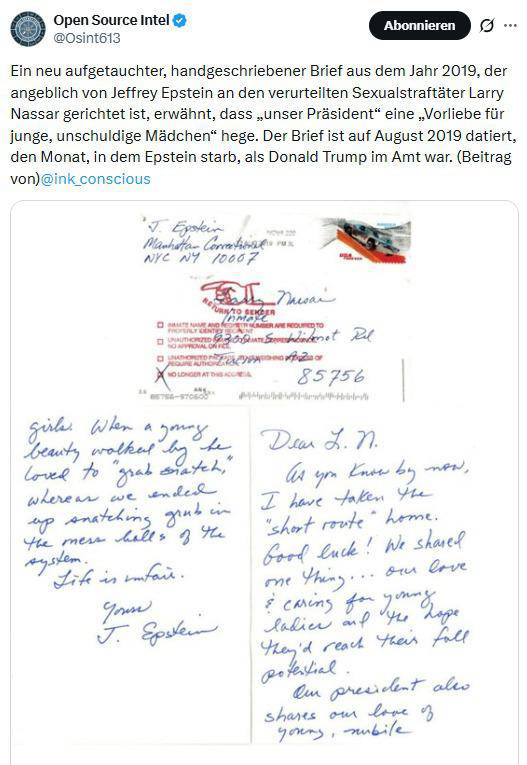 Open Source Intel
@Osint613
Abonnieren
Ein neu aufgetauchter, handgeschriebener Brief aus dem Jahr 2019, der
angeblich von Jeffrey Epstein an den verurteilten Sexualstraftäter Larry
Nassar gerichtet ist, erwähnt, dass „unser Präsident“ eine „Vorliebe für
junge, unschuldige Mädchen“ hege. Der Brief ist auf August 2019 datiert,
den Monat, in dem Epstein starb, als Donald Trump im Amt war. (Beitrag
von)@ink_conscious
J. Epstein
Manhattan Correctional
NYC NY 10007
USA
FOREVER
RETURN TO SENDER
Larry Nassar
Inmate
INMATE NAME AND REGISTER NUMBER ARE REQUIRED TO
PROPERLY IDENTIFY RECIPIENT
9300 S. Wilmot Rd
UNAUTHORIZED
NO APPROVAL ON FILE.
Tucson AZ
UNAUTHORIZED
REQUIRE
X NO LONGER AT THIS ADDRESS.
85756
girls. When a young
beauty walked by he
loved to "grab snatch,"
whereas we ended
up snatching grub in
the mess halls of the
system.
Life is unfair.
Yours
J. Epstein
Dear L. N.
As you know by now,
I have taken the
"short route" home.
Good luck! We shared
one thing... our love
& caring for young
ladies and the hope
they'd reach their full
potential.
Our president also
shares our love of
young, nubile